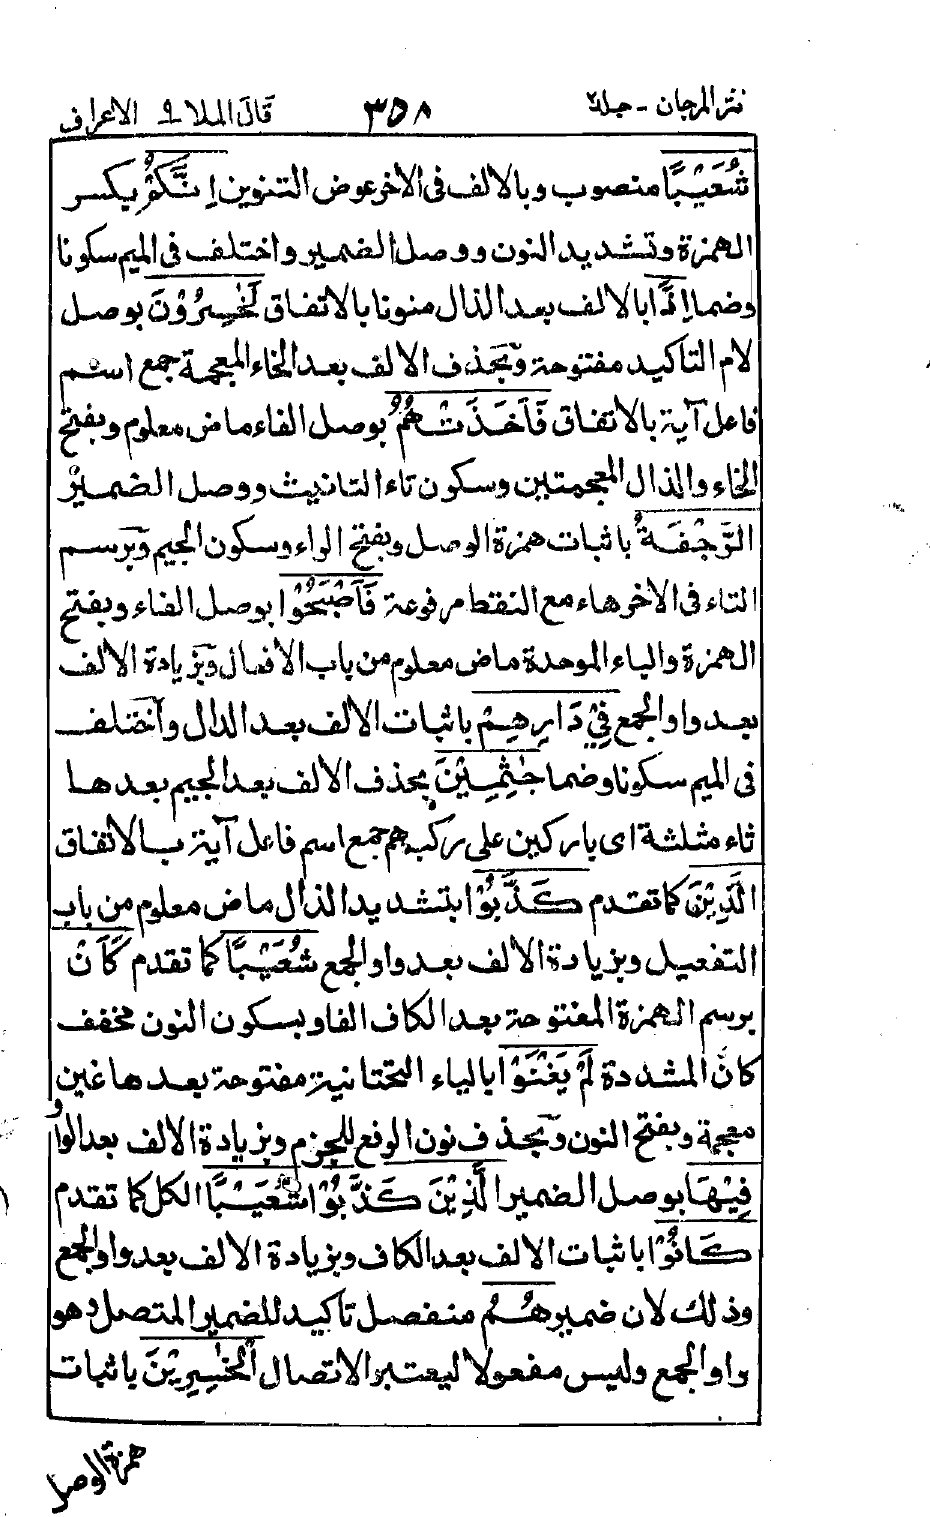 نثر المرجان - جلد ٢ ٣٥٨ قال الملا ٩ الاعراف
شُعَيْبًا منصوب وبالالف في الاخر عوض التنوين إِنَّكُمْ بكسر
الهمزة وتشديد النون ووصل الضمير واختلف في الميم سكونا
وضما إِذًا بالالف بعد الذال منونا بالاتفاق لَخٰسِرُوْنَ بوصل
لام التاكيد مفتوحة وبحذف الالف بعد الخاء المعجمة جمع اسم
فاعل آية بالاتفاق فَأَخَذَتْهُمُ بوصل الفاء ماض معلوم وبفتح
الخاء والذال المعجمتين وسكون تاء التانيث ووصل الضمير
الرَّجْفَةُ باثبات همزة الوصل وبفتح الراء وسكون الجيم وبرسم
التاء في الاخر هاء مع النقط مرفوعة فَأَصْبَحُوْا بوصل الفاء وبفتح
الهمزة والباء الموحدة ماض معلوم من باب الافعال وبزيادة الالف
بعد واو الجمع فِيْ دَارِهِمْ باثبات الالف بعد الدال واختلف
في الميم سكونا وضما جٰثِمِيْنَ بحذف الالف بعد الجيم بعدها
ثاء مثلثة اى باركين على ركبهم جمع اسم فاعل آية بالاتفاق
الَّذِيْنَ كما تقدم كَذَّبُوْا بتشديد الذال ماض معلوم من باب
التفعيل وبزيادة الالف بعد واو الجمع شُعَيْبًا كما تقدم كَأَنْ
برسم الهمزة المفتوحة بعد الكاف الفا وبسكون النون مخفف
كأنّ المشددة لَمْ يَغْنَوْا بالياء التحتانية مفتوحة بعدها غين
معجمة وبفتح النون وبحذف نون الرفع للجزم وبزيادة الالف بعد الواو
فِيْهَا بوصل الضمير الَّذِيْنَ كَذَّبُوْا شُعَيْبًا الكل كما تقدم
كَانُوْا باثبات الالف بعد الكاف وبزيادة الالف بعد واو الجمع
وذلك لان ضمير هُمُ منفصل تاكيد للضمير المتصل وهو
واو الجمع وليس مفعولا ليعتبر الاتصال الْخٰسِرِيْنَ باثبات
همزة الوصل